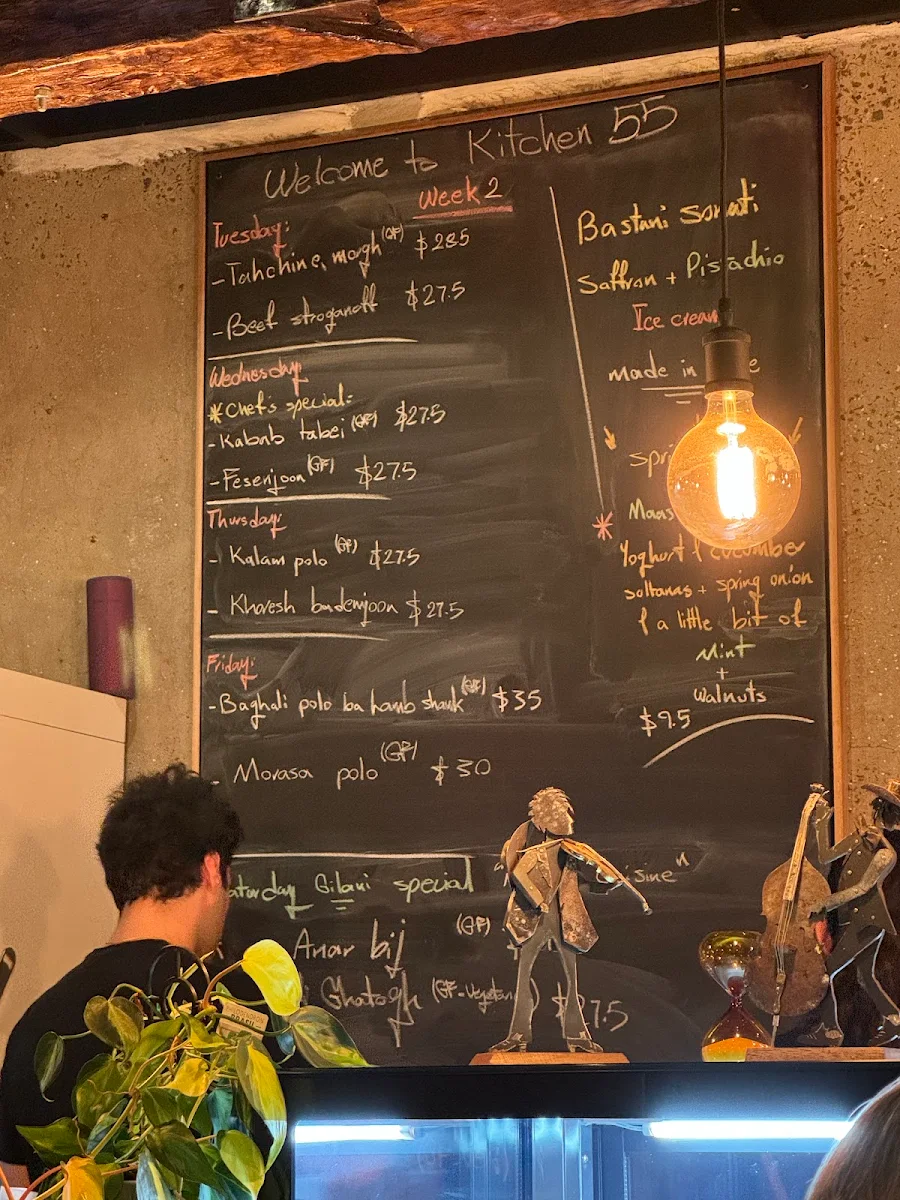 Welcome to Kitchen 55
Week 2
Tuesday:
- Tahchine, morgh (GF) $28.5
- Beef stroganoff $27.5
Wednesday
* Chef's special:
- Kabab tabei (GF) $27.5
- Fesenjoon (GF) $27.5
Thursday:
- Kalam polo (GF) $27.5
- Khoresh bademjoon $27.5
Friday:
- Baghali polo ba lamb shank (GF) $35
- Morasa polo (GF) $30
Gilani special
Anar bij (GF)
Ghatogh (GF-vegetarian)
Bastani sonati
Saffron + Pistachio
Ice cream
made in
*
Yoghurt & cucumber
soltanas + spring onion
& a little bit of
Mint
+
Walnuts
$9.5